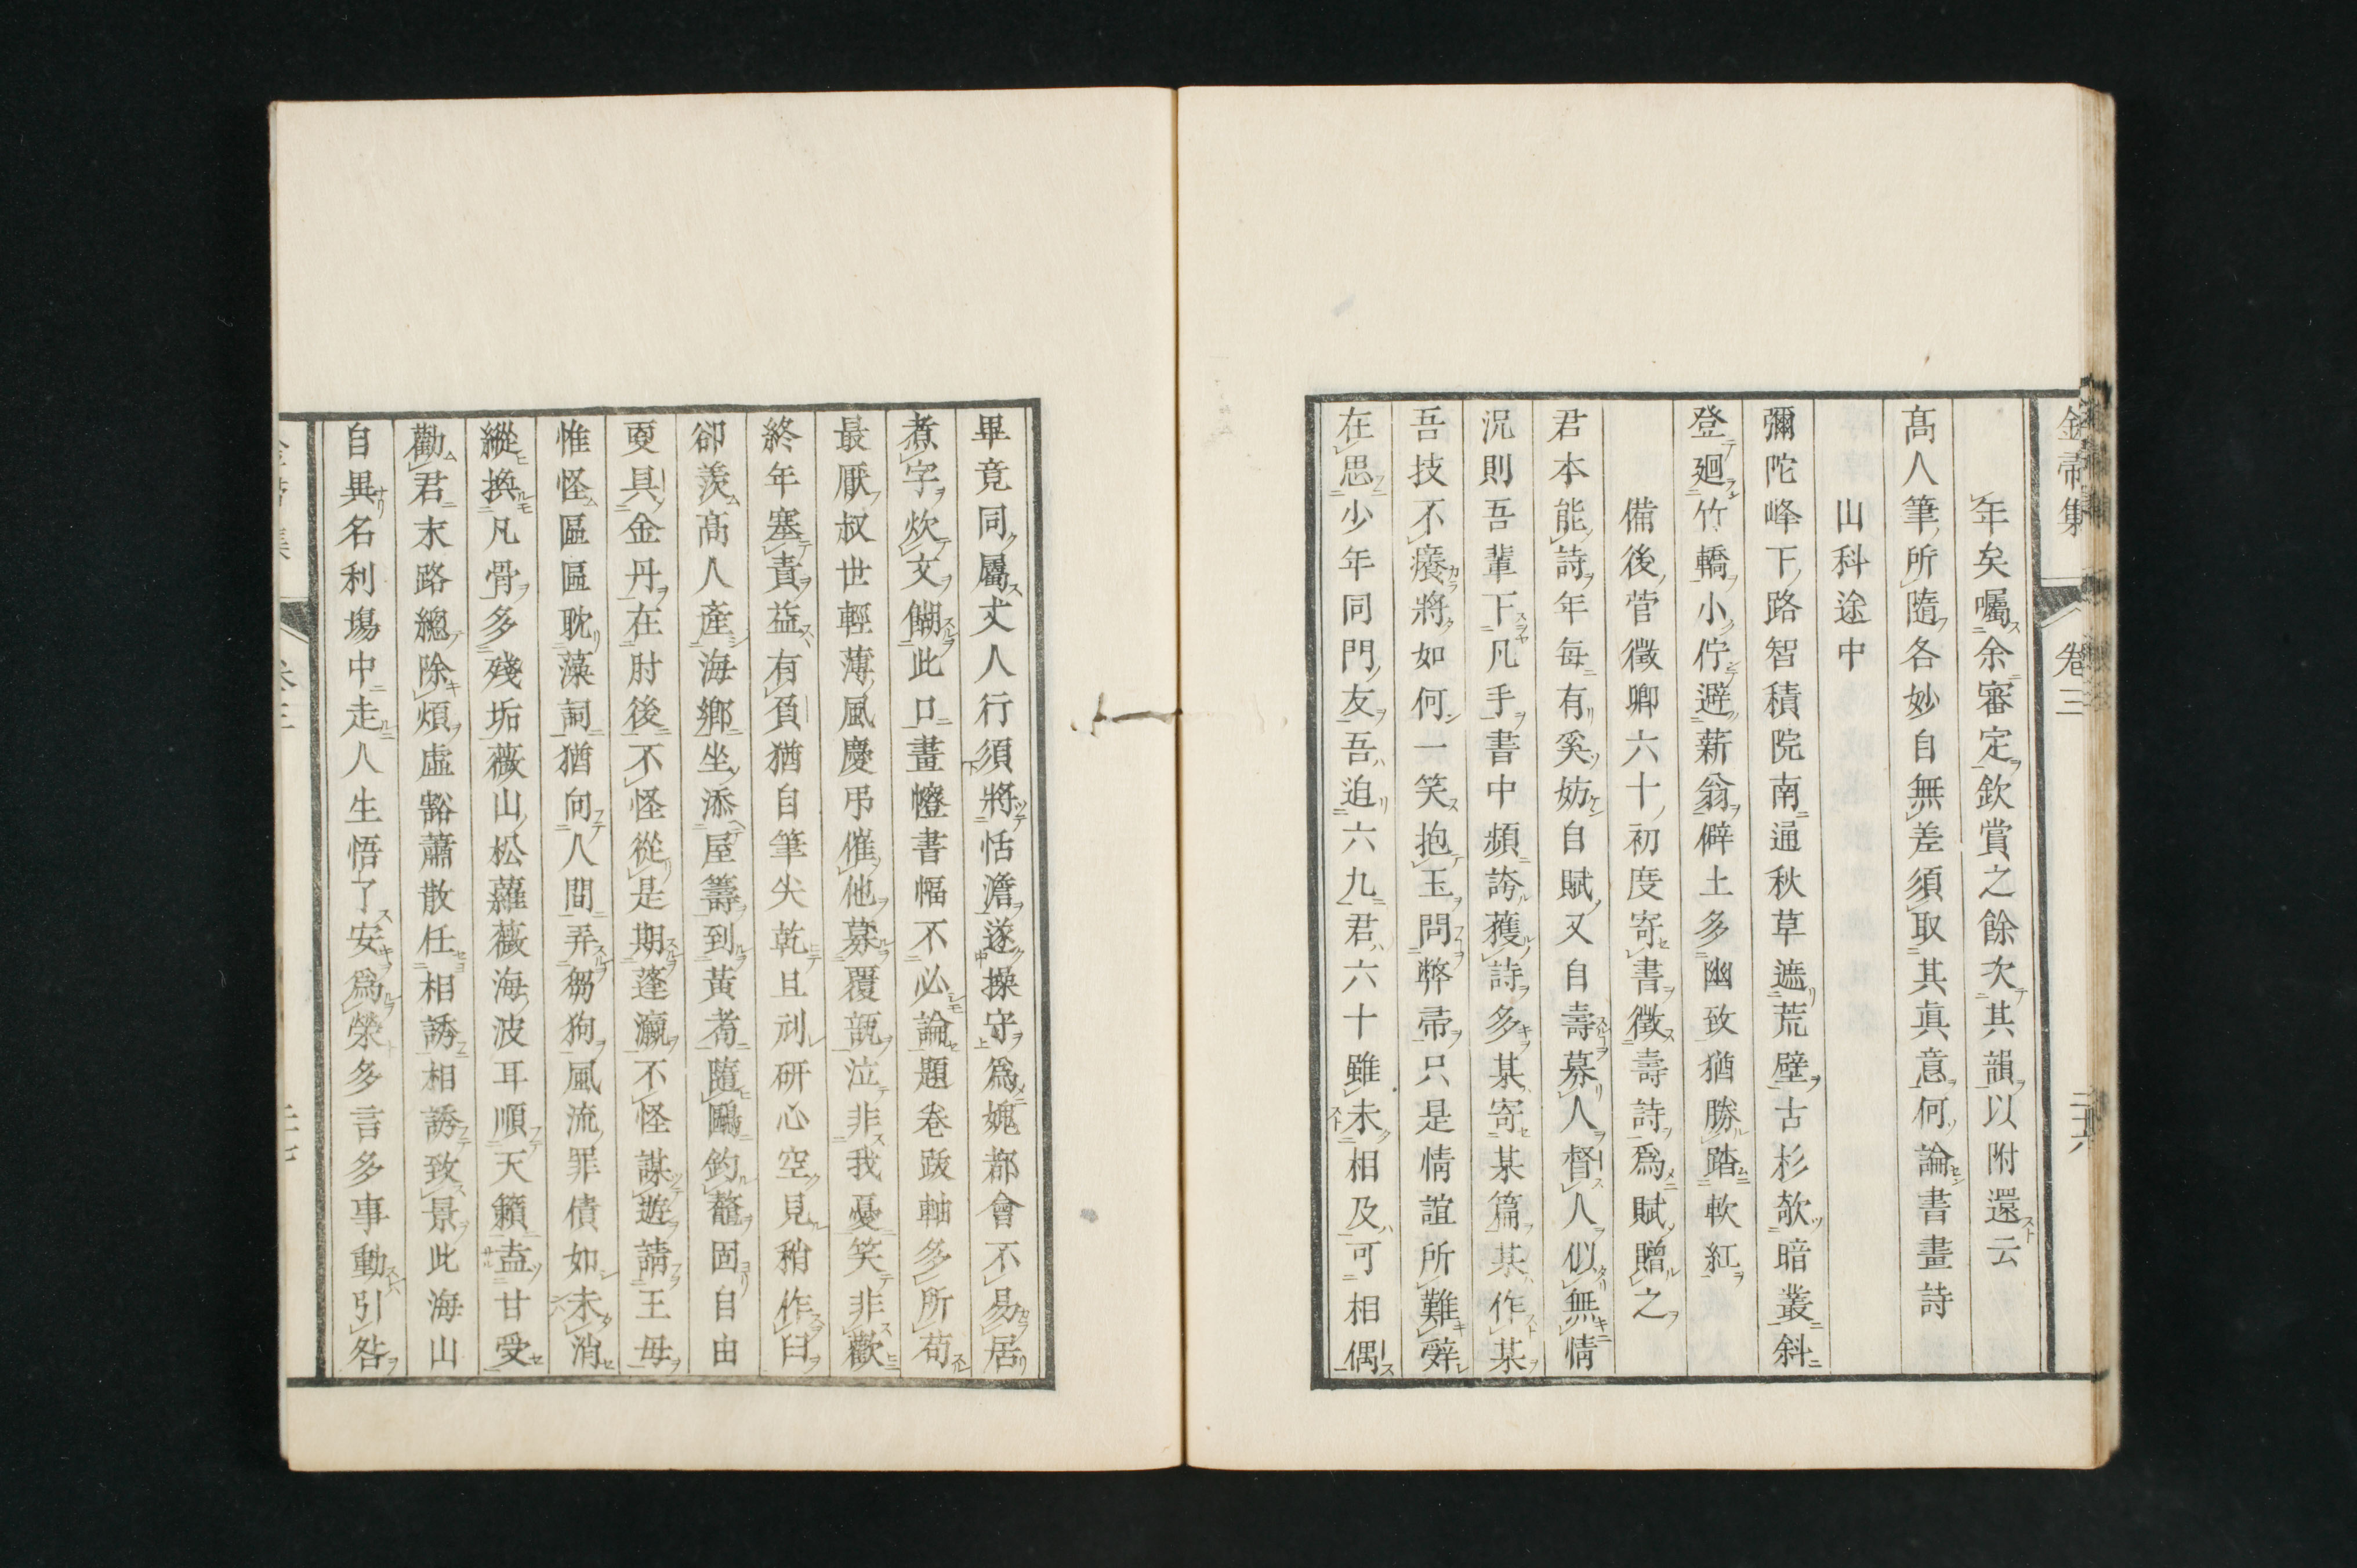 金帚集 卷三
年矣囑余審定欽賞之餘次其韻以附還云
髙人筆所隨各妙自無差須取其眞意何論書畫詩
山科途中
彌陀峰下路智積院南通秋草遮荒壁古杉欹暗叢斜
登廻竹轎小佇避薪翁僻土多幽致猶勝踏軟紅
備後菅徵卿六十初度寄書徵壽詩爲賦贈之
君本能詩年每有奚妨自賦又自壽募人督人似無情
況則吾輩下凡手書中頻誇獲詩多某寄某篇某作某
吾技不癢將如何一笑抱玉問弊帚只是情誼所難辭
在思少年同門友吾迫六九君六十雖未相及可相偶
畢竟同屬丈人行須將恬澹遂操守爲媿都會不易居
煮字炊文餬此口畫幛書幅不必論題卷跋軸多所苟
最厭叔世輕薄風慶弔催他募覆瓿泣非我憂笑非歡
終年塞責益有負猶自筆尖乾且刓研心空見稍作臼
卻羨髙人產海鄉坐添屋籌到黃耇隨鷗釣鼇固自由
更具金丹在肘後不怪從是期蓬瀛不怪謀遊請王母
惟怪區區耽藻詞猶向人間弄芻狗風流罪債如未消
縱換凡骨多殘垢薇山松蘿薇海波耳順天籟盍甘受
勸君末路總除煩虛豁蕭散任相誘相誘致景此海山
自異名利塲中走人生悟了安爲榮多言多事動引咎